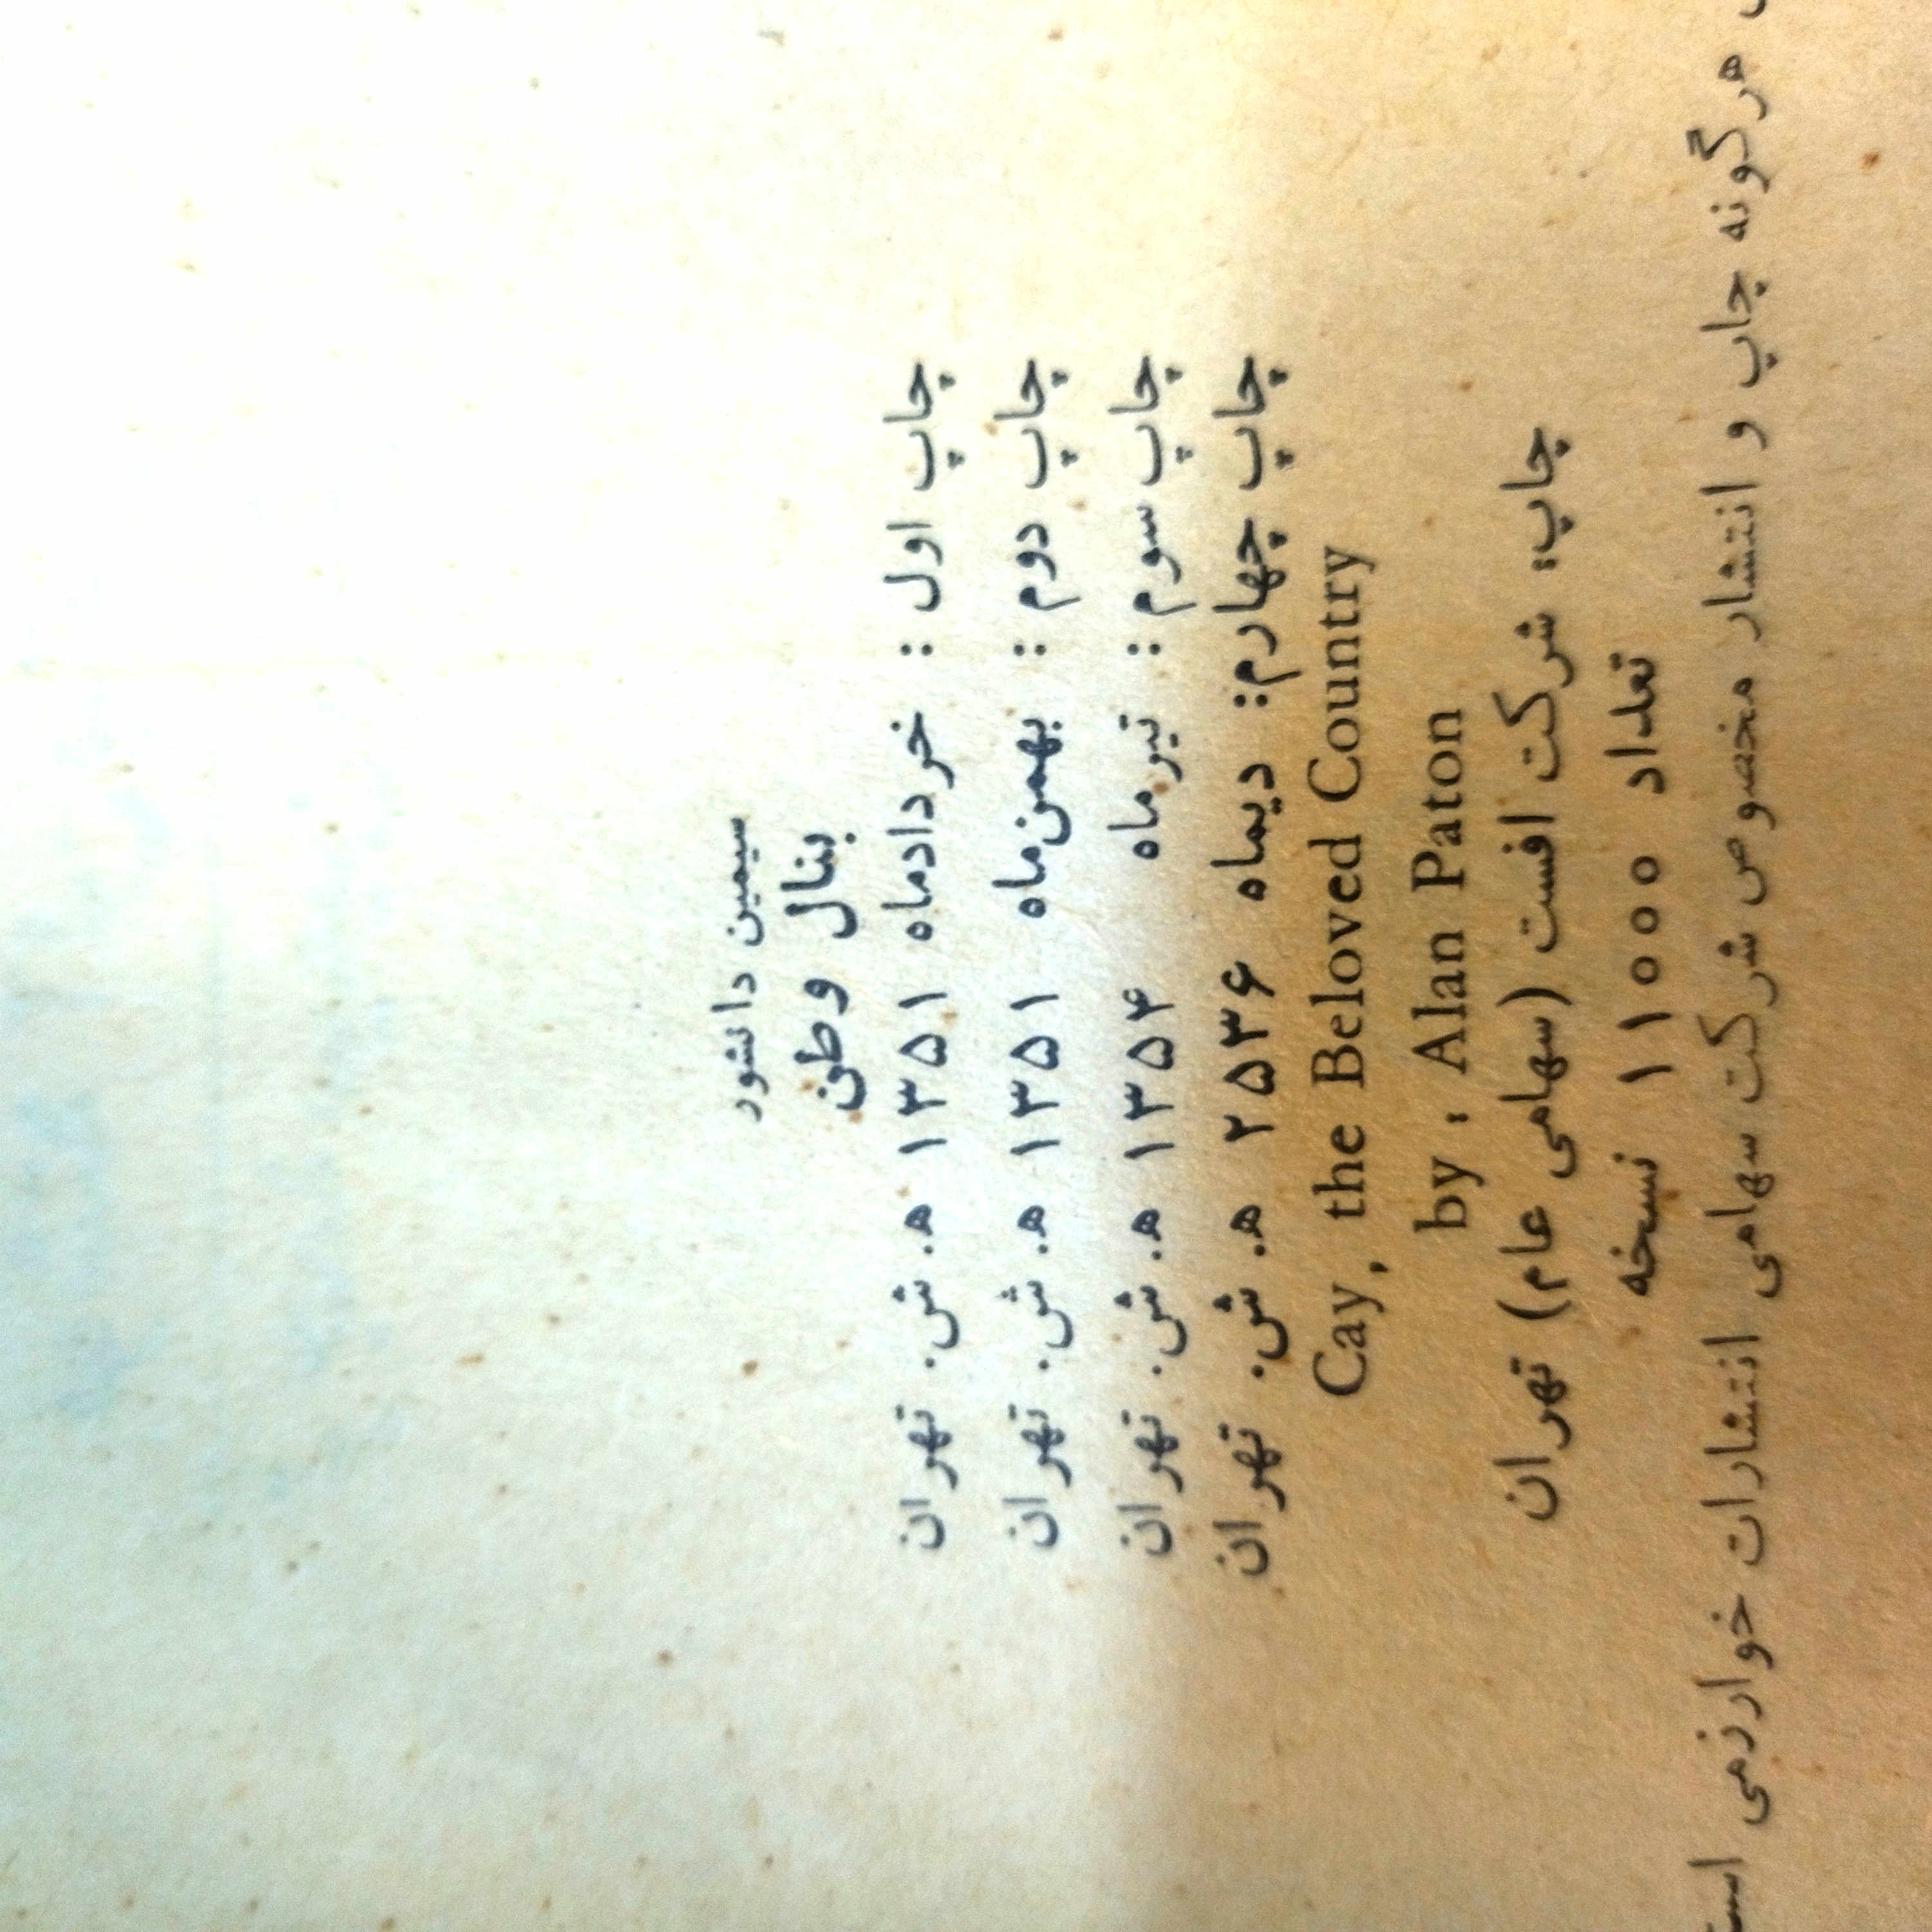 سیمین دانشور
بنال وطن
چاپ اول : خردادماه ۱۳۵۱ ه. ش. تهران
چاپ دوم : بهمن‌ماه ۱۳۵۱ ه. ش. تهران
چاپ سوم : تیرماه ۱۳۵۴ ه. ش. تهران
چاپ چهارم: دیماه ۲۵۳۶ ه. ش. تهران
Cay, the Beloved Country
by : Alan Paton
چاپ: شرکت افست (سهامی عام) تهران
تعداد ۱۱۰۰۰ نسخه
هرگونه چاپ و انتشار مخصوص شرکت سهامی انتشارات خوارزمی